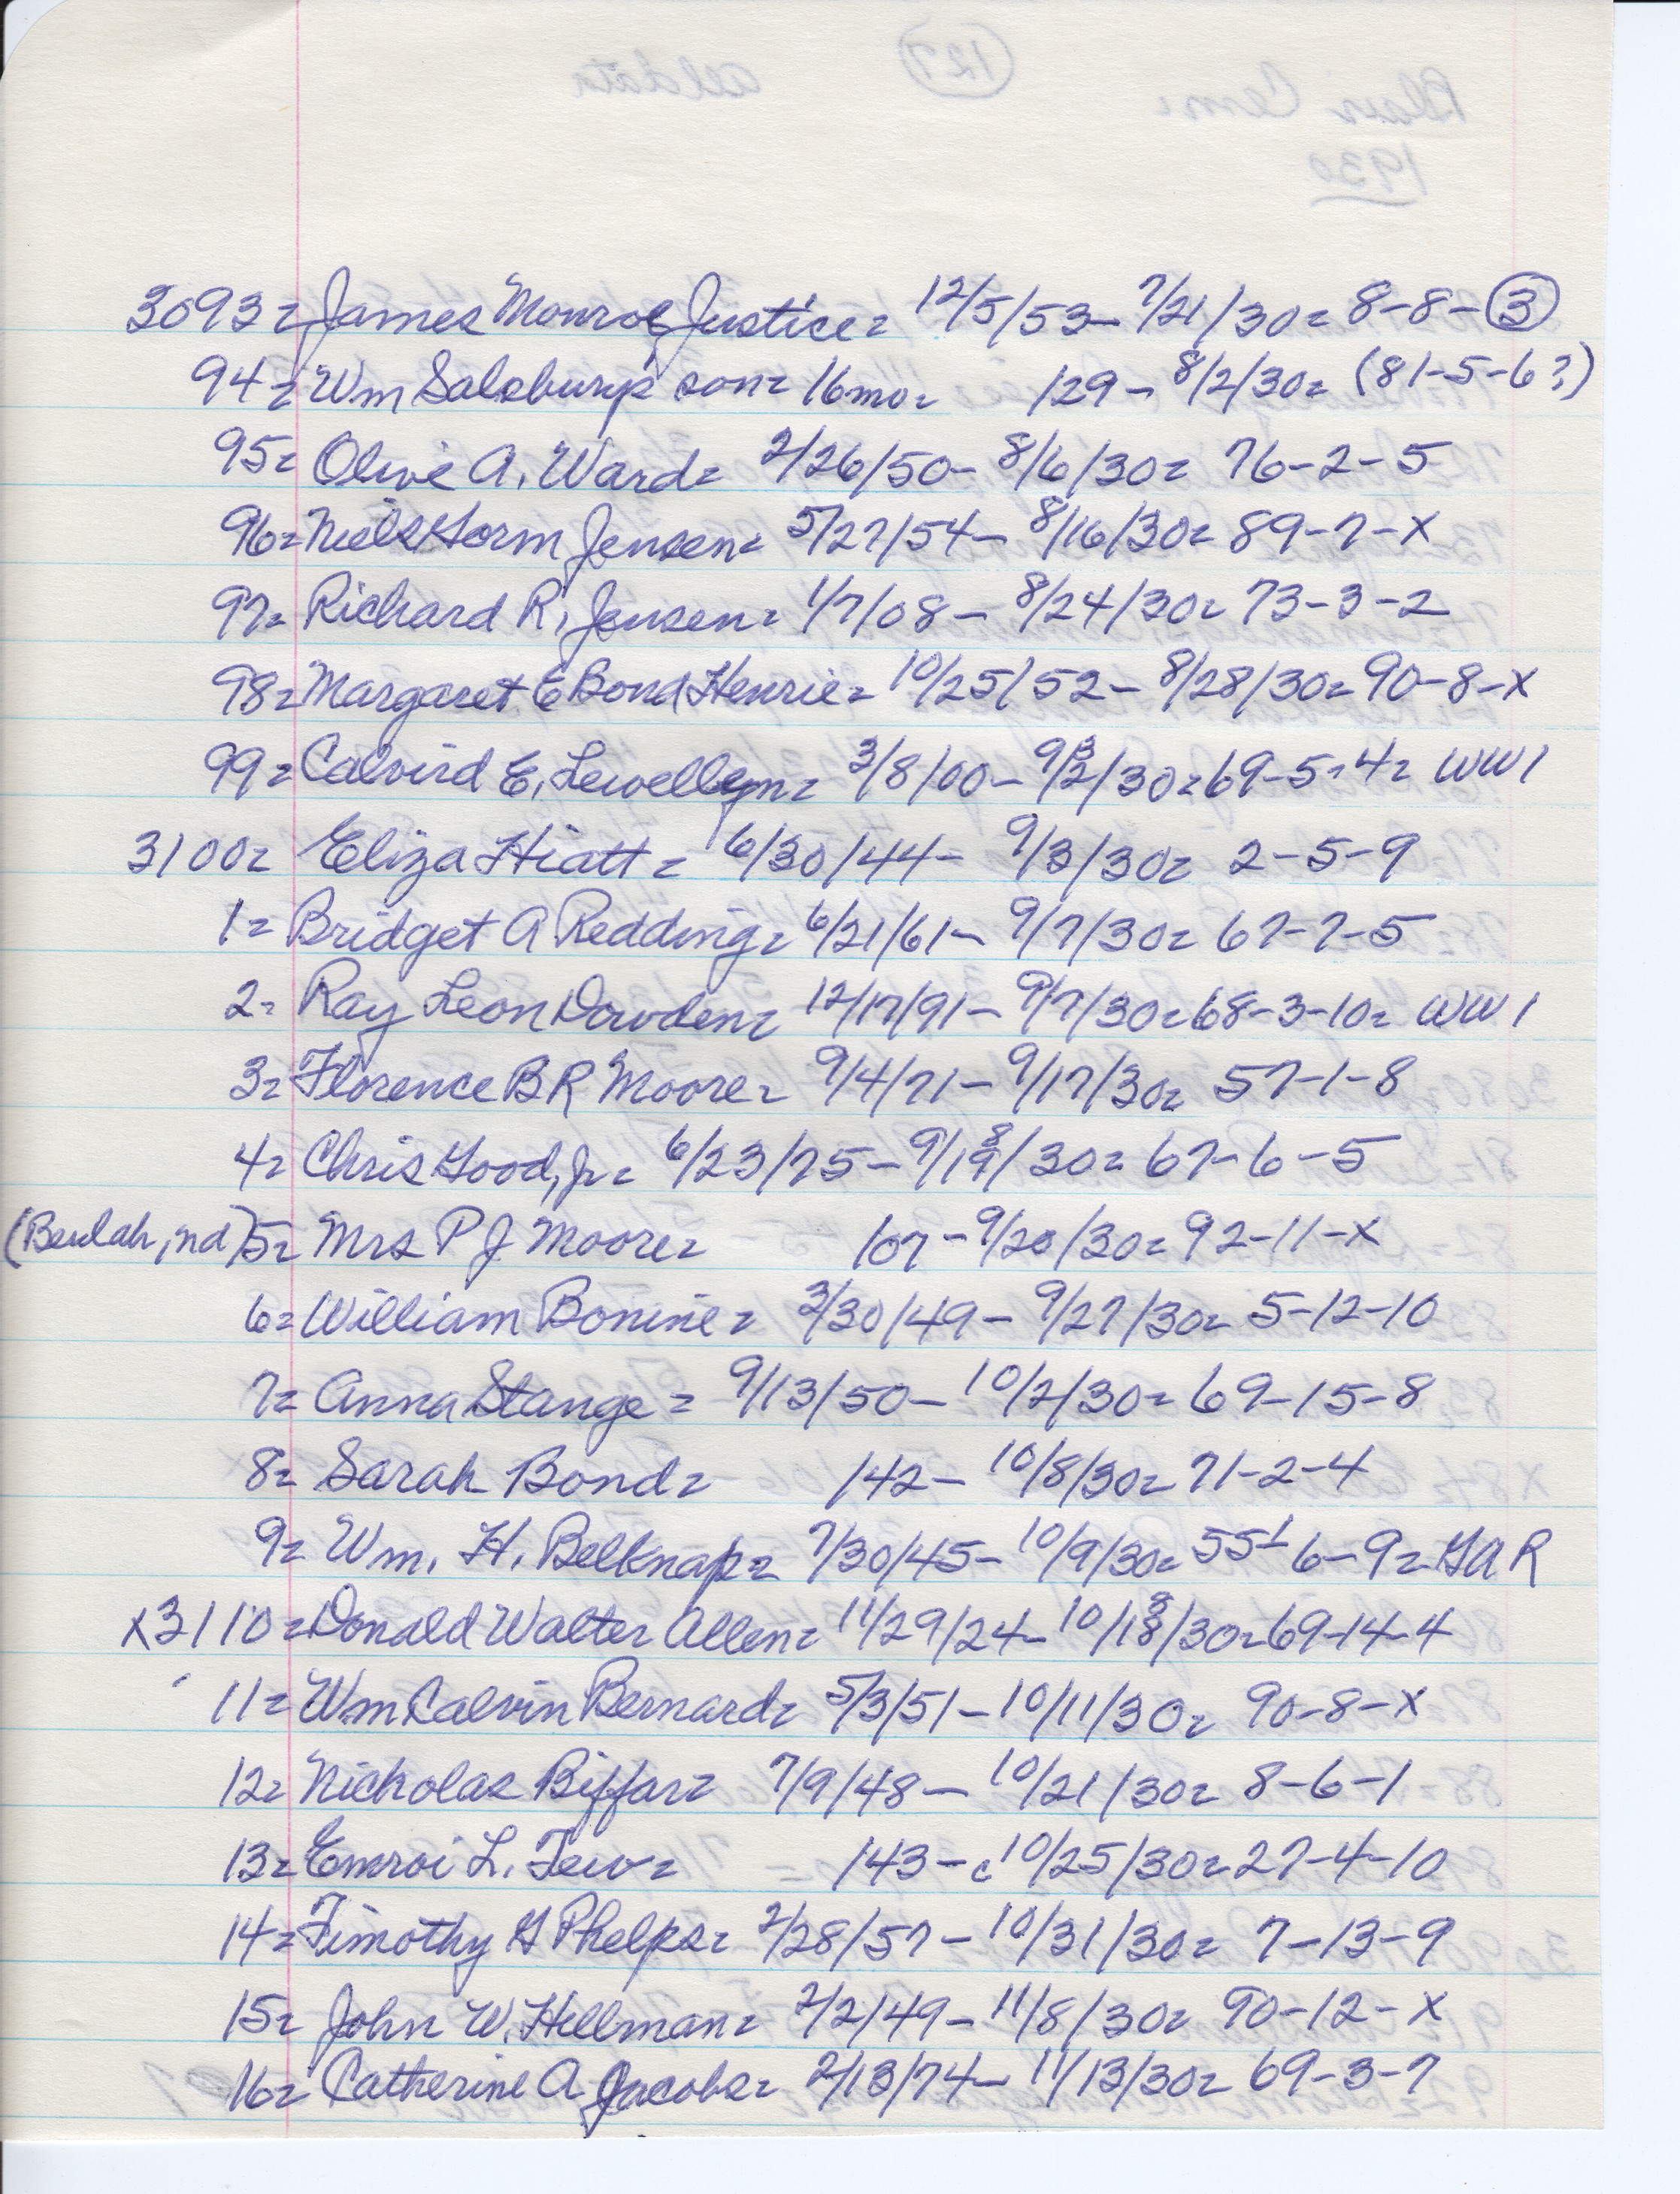 3093= James Monroe Justice= 12/5/53- 7/21/30= 8-8-3
94= Wm Salsbury son= 16mo= 129- 8/2/30= (81-5-6?)
95= Olive A. Ward= 2/26/50- 8/6/30= 76-2-5
96= Niels Gorm Jensen= 5/27/54- 8/16/30= 89-7-X
97= Richard R. Jensen= 1/7/08- 8/24/30= 73-3-2
98= Margaret E Bond Henrie= 10/25/52- 8/28/30= 90-8-X
99= Calvird E. Lewellyn= 3/8/00- 9/2/30= 69-5-4= WW1
3100= Eliza Hiatt= 6/30/44- 9/3/30= 2-5-9
1= Bridget A Redding= 6/21/61- 9/7/30= 67-7-5
2= Ray Leon Dowden= 12/17/91- 9/7/30= 68-3-10= WW1
3= Florence B R Moore= 9/4/71- 9/17/30= 57-1-8
4= Chris Good, Jr= 6/23/75- 9/18/30= 67-6-5
(Beulah, nd) 5= Mrs P J Moore= 107- 9/20/30= 92-11-X
6= William Bonine= 3/30/49- 9/27/30= 5-12-10
7= Anna Stange= 9/13/50- 10/2/30= 69-15-8
8= Sarah Bond= 142- 10/8/30= 71-2-4
9= Wm. H. Belknap= 7/30/45- 10/9/30= 55-6-9= GAR
X3110= Donald Walter Allen= 11/29/24- 10/18/30= 69-14-4
11= Wm Calvin Bernard= 5/3/51- 10/11/30= 90-8-X
12= Nicholas Biffar= 7/9/48- 10/21/30= 8-6-1
13= Emroi L. Tew= 143- c10/25/30= 27-4-10
14= Timothy G Phelps= 2/28/57- 10/31/30= 7-13-9
15= John W. Hillman= 2/2/49- 11/8/30= 90-12-X
16= Catherine A Jacobs= 2/13/74- 11/13/30= 69-3-7